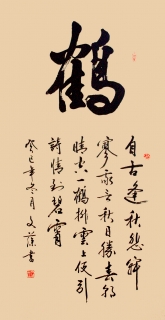 鶴
自古逢秋悲寂
寥我言秋日勝春朝
晴空一鶴排雲上便引
詩情到碧霄
癸巳年六月文蓮書